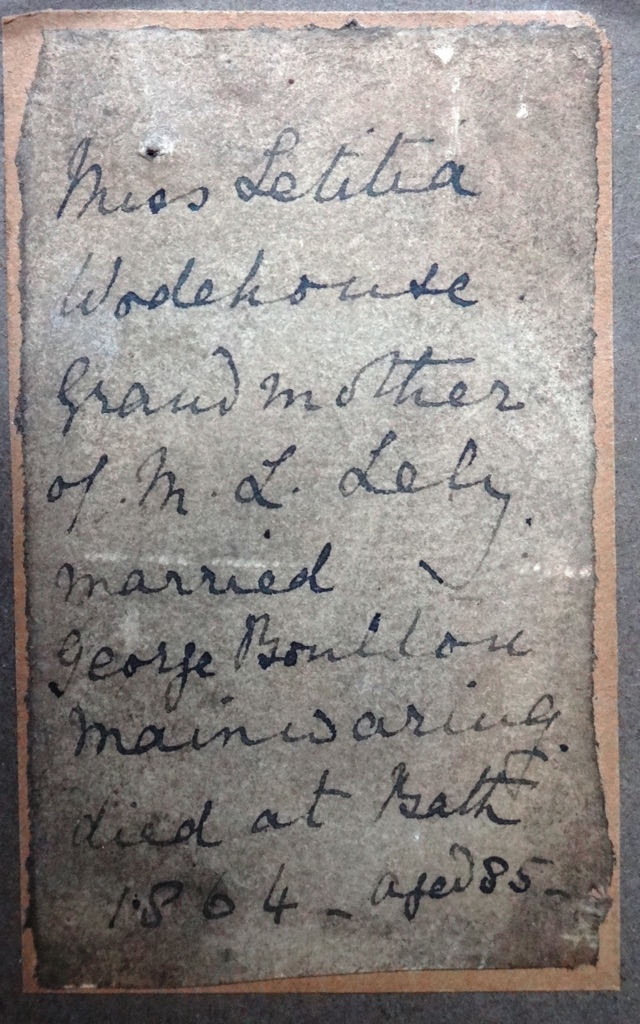 Miss Letitia
Wodehouse.
Grandmother
of. M. L. Lely.
married
George Boulton
Mainwaring.
died at Bath
1864 - aged 85 -